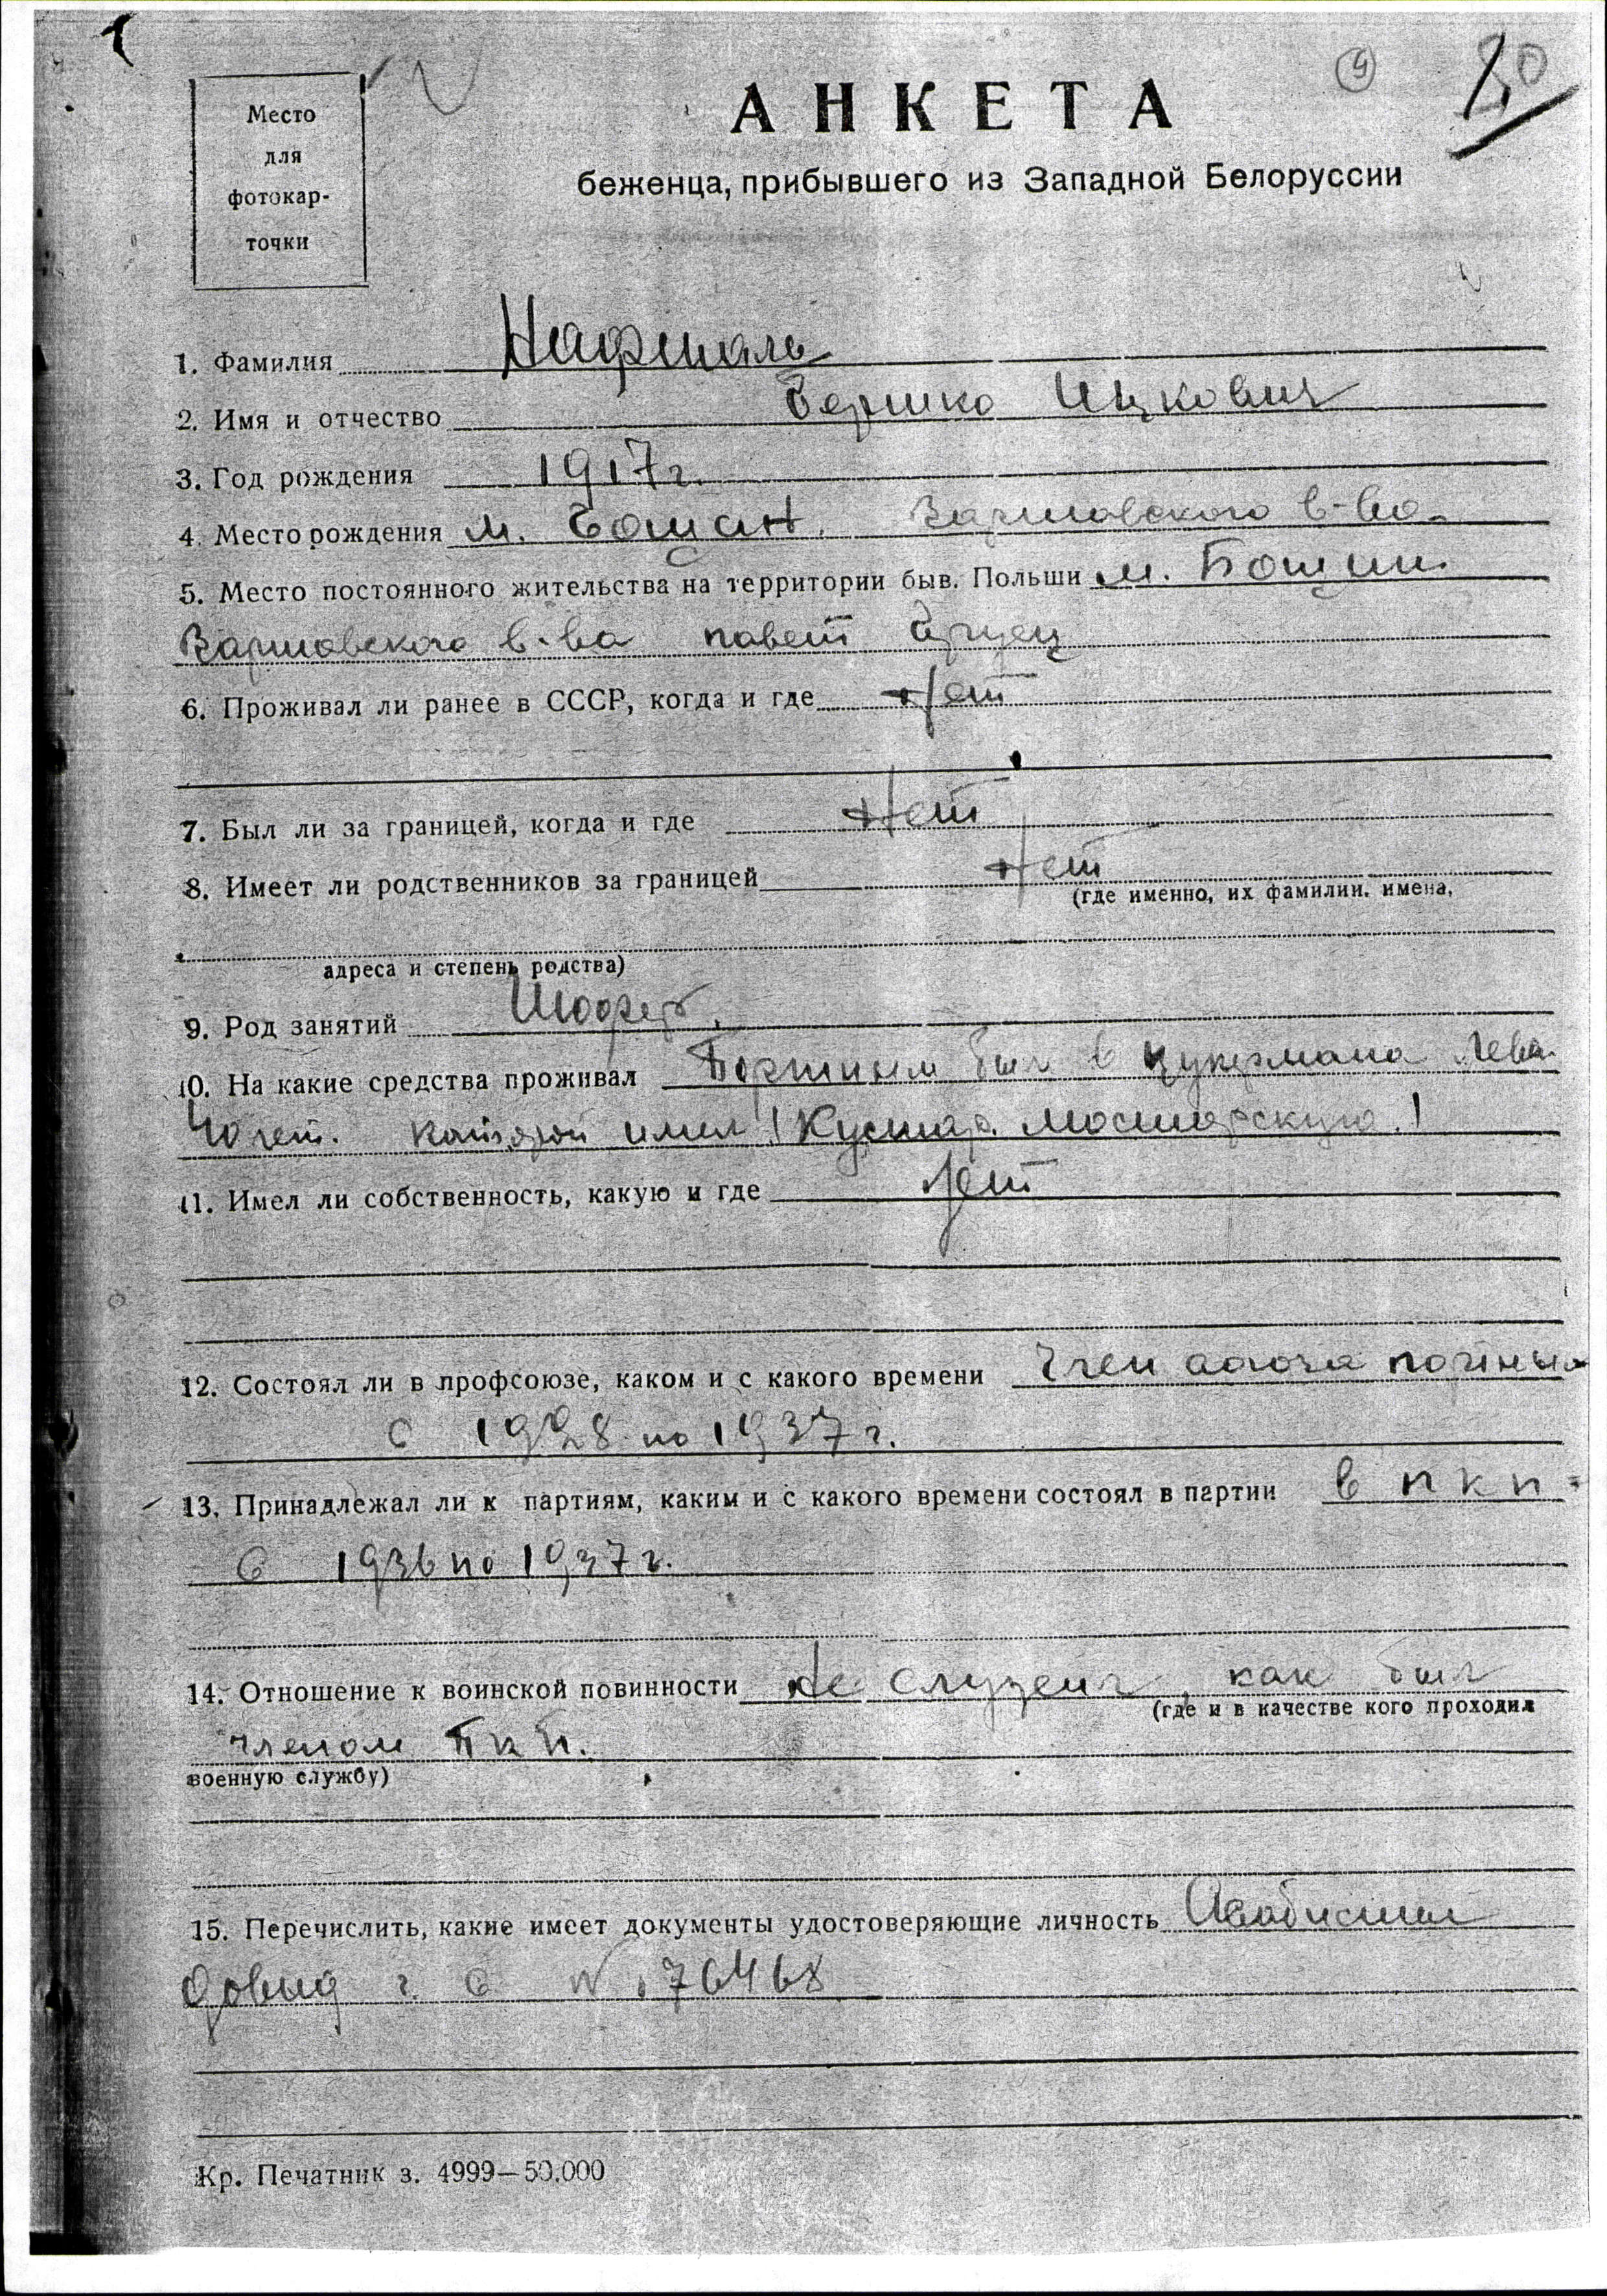 9
20
Место
для
фотокар-
точки
АНКЕТА
беженца, прибывшего из Западной Белоруссии
1. Фамилия Нафталь
2. Имя и отчество Ицкович
3. Год рождения 1917 г.
4. Место рождения м. Варшовского в-во.
5. Место постоянного жительства на территории быв. Польши м.
Варшовского в-ва повет
6. Проживал ли ранее в СССР, когда и где Нет
7. Был ли за границей, когда и где Нет
8. Имеет ли родственников за границей Нет
(где именно, их фамилии, имена,
адреса и степень родства)
9. Род занятий Шофер.
10. На какие средства проживал был в Цукермана
который имел
11. Имел ли собственность, какую и где Нет
12. Состоял ли в профсоюзе, каком и с какого времени Член союза
с 1928 по 1937 г.
13. Принадлежал ли к партиям, каким и с какого времени состоял в партии в ПКП
с 1936 по 1937 г.
14. Отношение к воинской повинности Не как был
(где и в качестве кого проходил
членом ПКП.
военную службу)
15. Перечислить, какие имеет документы удостоверяющие личность
№ 176468
Кр. Печатник з. 4999—50.000